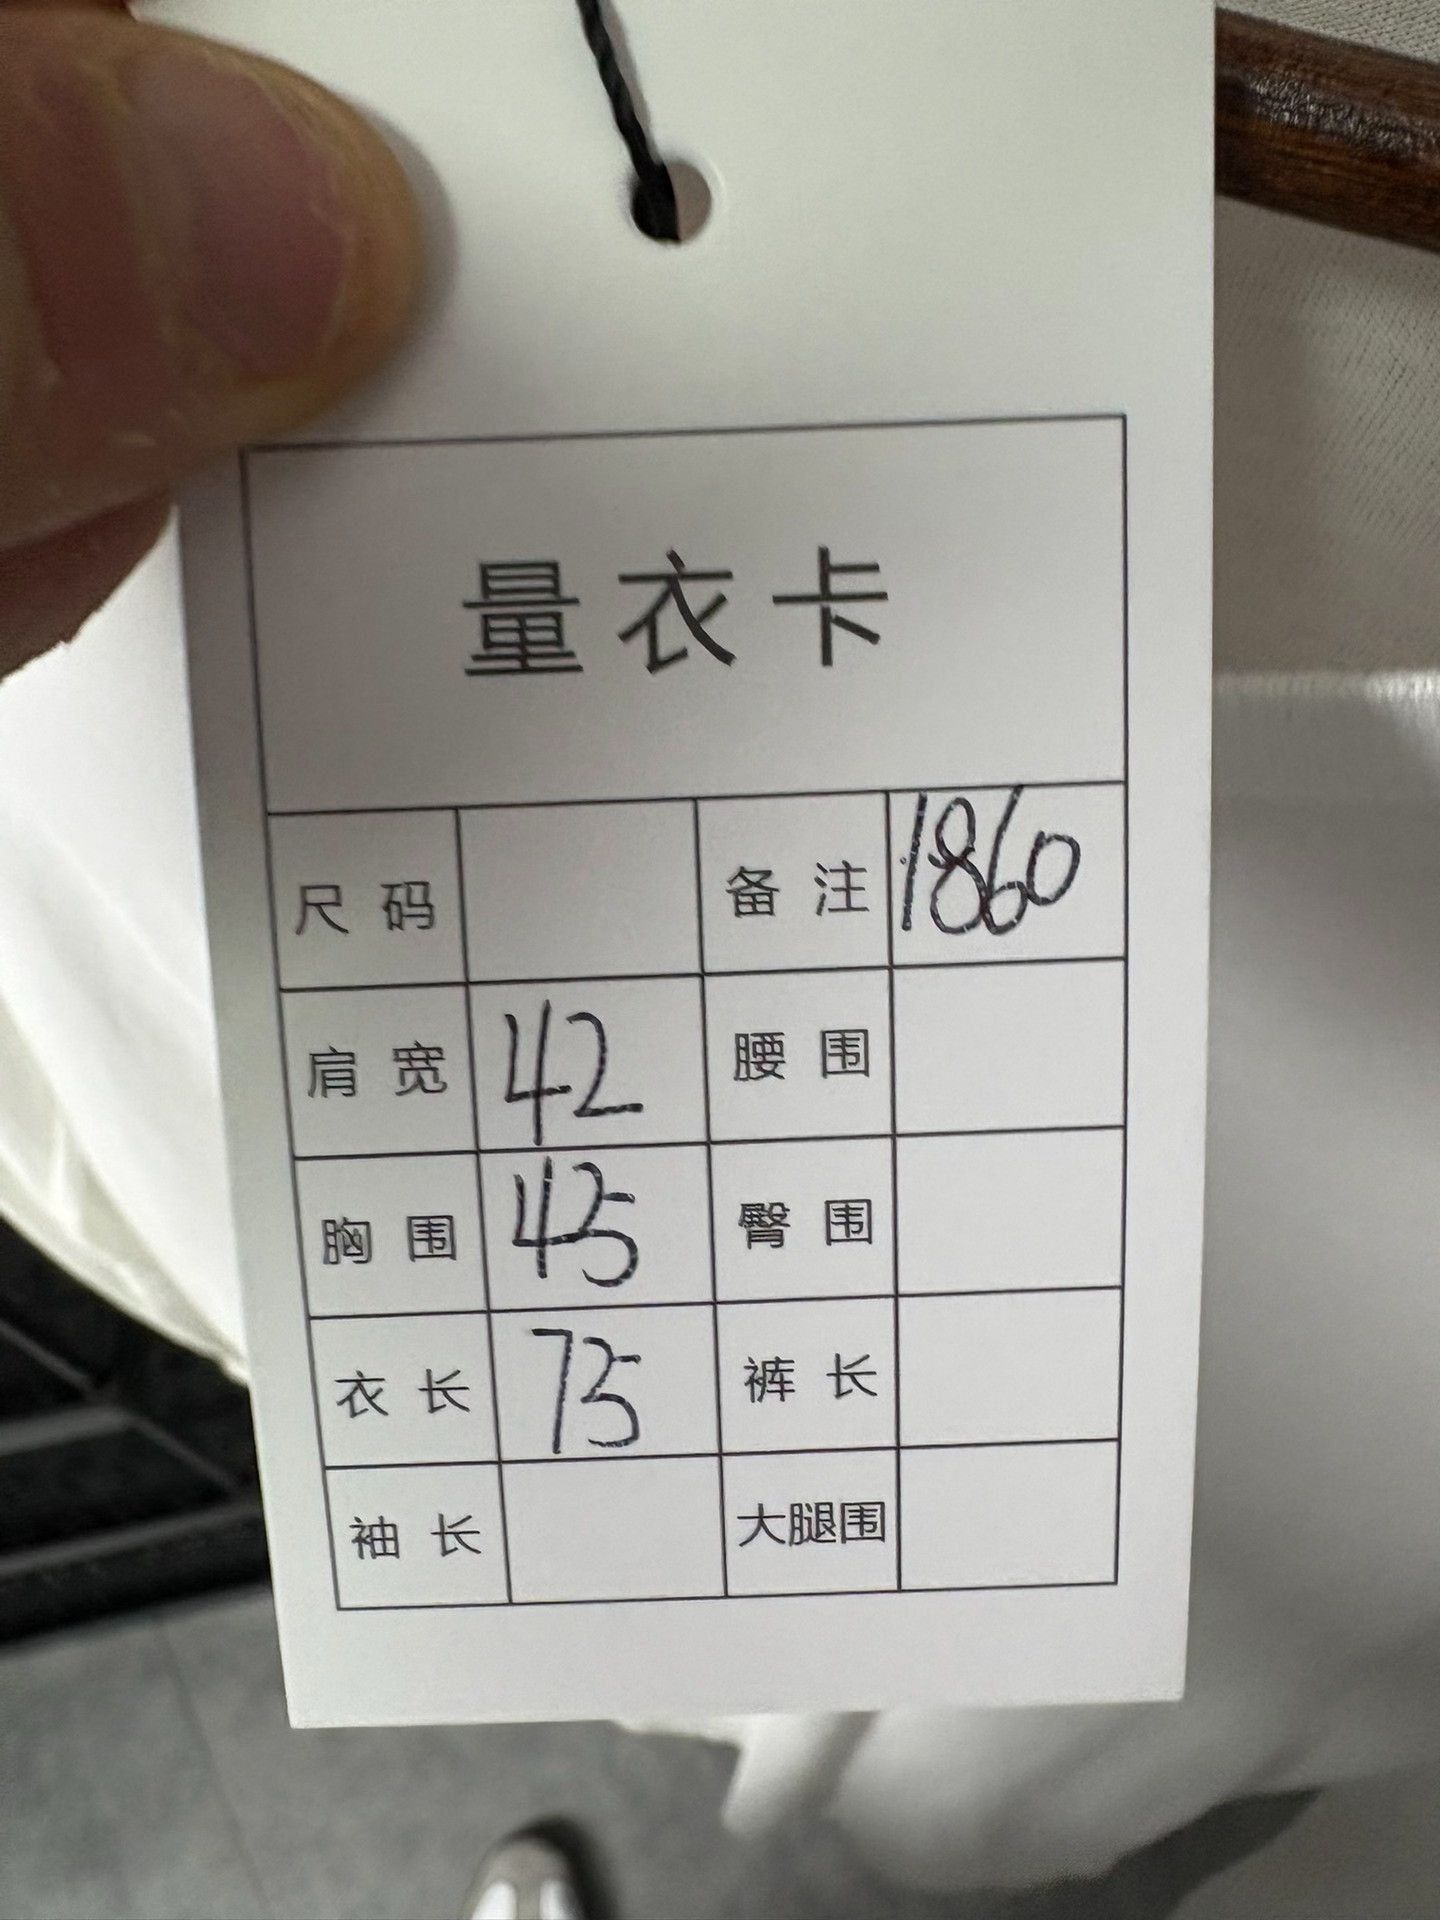 量衣卡
尺码 备注 1860
肩宽 42 腰围
胸围 45 臀围
衣长 75 裤长
袖长 大腿围